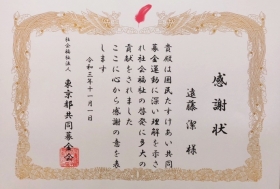 感謝状
遠藤潔様
貴殿は国民たすけあい共同
募金運動に深い理解を示さ
れ社会福祉の啓発に多大の
貢献をされました
ここに心から感謝の意を表
します
令和三年十一月一日
社会福祉法人
東京都共同募金会